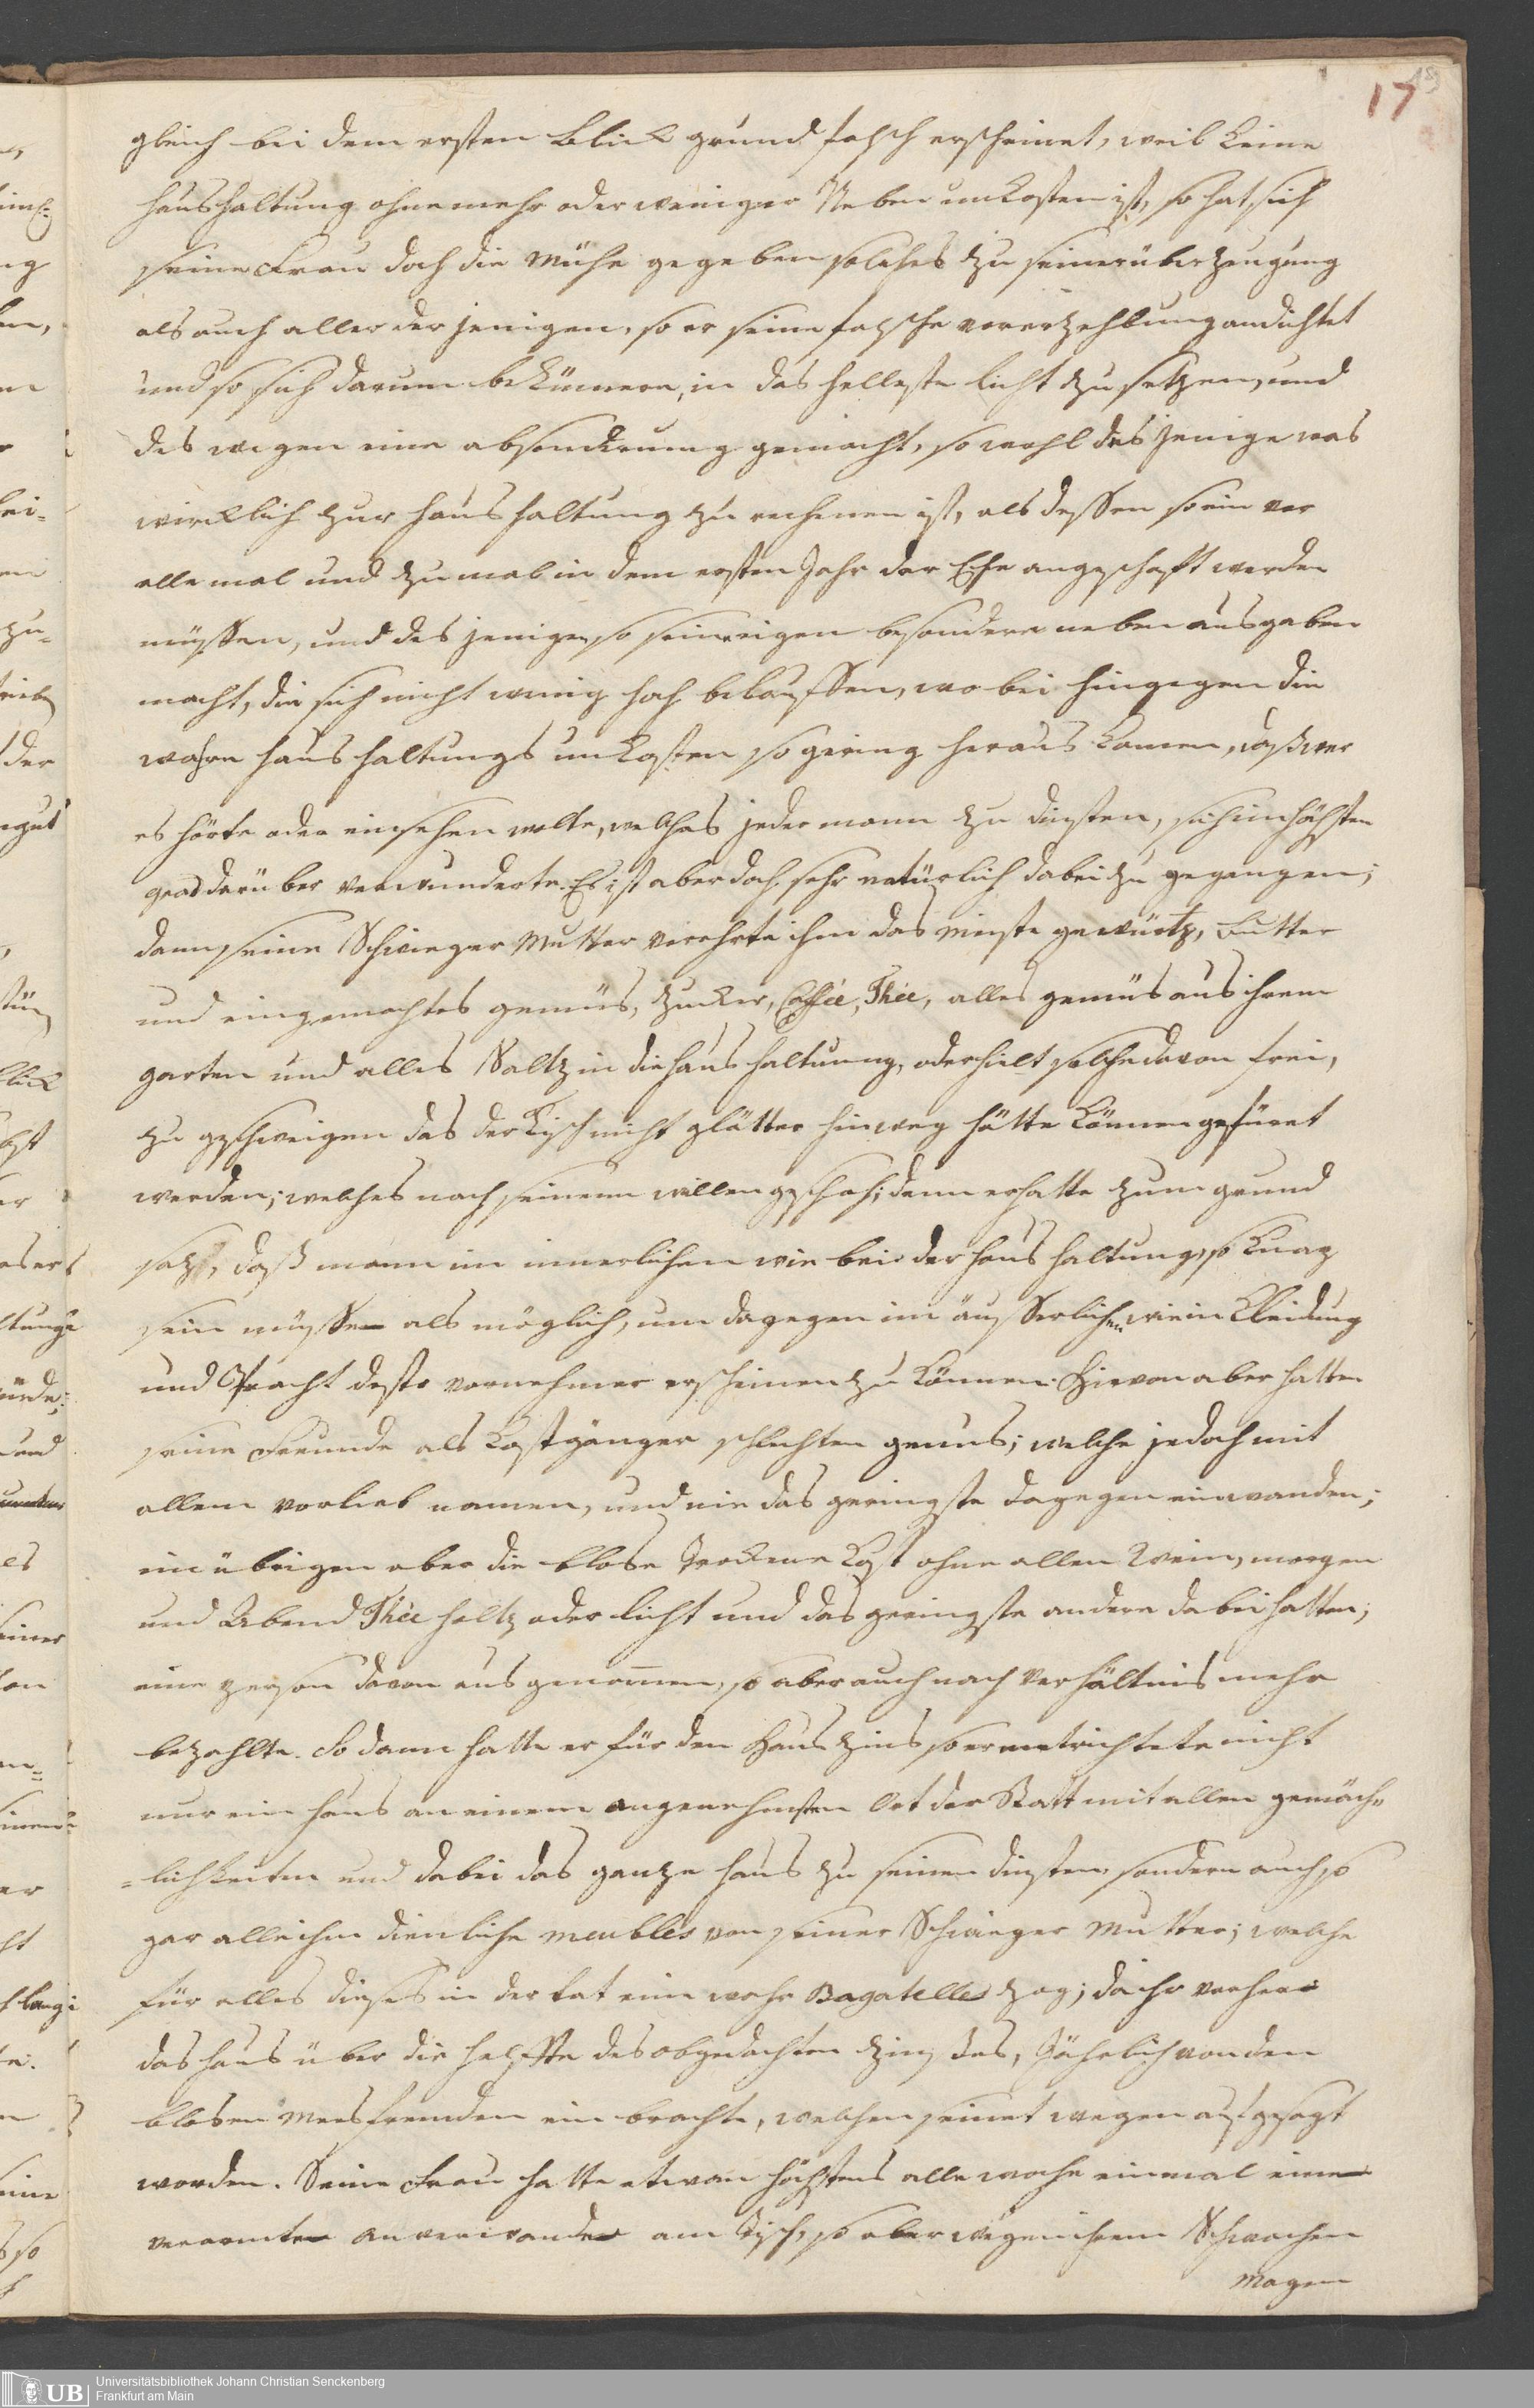 17
gleich bei dem ersten Blick grund falsch erscheinet, weil keine
haushaltung ohne mehr oder weniger Neben unkosten ist, so hat sich
seine Frau doch die Mühe gegeben solches zu seiner überzeugung
als auch aller der jenigen, so er seine falsche vorerzehlung andichtet
und so sich darum bekümern, in das helleste licht zu setzen, und
des wegen eine absonderung gemacht, so wohl das jenige was
wircklich zur haushaltung zu rechenen ist, als dessen so ein vor
alle mal und zu mal in dem ersten Jahr der Ehe angeschaft werden
müssen, und des jenigen so seine eigen besondere neben ausgaben
macht, die sich nicht wenig hoch belauffen, wo bei hingegen die
wahre haus haltungs unkosten so gering heraus kamen, daß wer
es hörte oder einsehen wolte, welches jeder mann zu dinsten, sich im höchsten
grad darüber verwunderte. Es ist aber doch sehr natürlich dabei zu gegangen;
dann seine Schwieger Mutter verehrte ihm das meiste gewürtz, Butter
und eingemachtes gemüs, Zucker, Caffée, Thée, alles gemüs aus ihrem
garten und alles Saltz in die haus haltung, oder hielt solche davon frei,
zu geschweigen das der Tisch nicht glätter hinweg hätte können gefüret
werden; welches nach seinem willen geschah; denn er hatte zum grund
satz, daß mann im innerlichen wie bei der haus haltung, so knap
sein müsse als möglich, um dagegen im äusserlichen wie in Kleidung
und Pracht desto vornehmer erscheinen zu können. Hievon aber hatten
seine Freunde als Kostgänger schlechten genus; welche jedoch mit
allem vorlieb namen, und nie das geringste dagegen einwanden;
im übrigen aber die blose trockene Kost ohne allen Wein, morgen
und Abend Thée holtz oder licht und das geringste andere dabei hatten;
eine person davon ausgenommen, so aber auch nach Verhältnis mehr
bezahlte. So dann hatte er für den Haus zins so er entrichtete nicht
nur ein haus an einem angenehmsten Ort der Statt mit allen gemäch=
=lichkeiten und dabei das ganze haus zu seinen dinsten, sondern auch so
gar alle ihm dienliche meubles von seiner Schwieger Mutter; welche
für alles dieses in der tat eine wahre Bagatelles zog; da ihr vorher
das haus über die helffte des obgedachten zinses, Jährlich von den
blosen Mess fremden ein brachte, welchen seinet wegen aufgesagt
worden. Seine Frau hatte etwan höchstens alle woche einmal eine
verarmte anverwande am Tisch, so aber wegen ihrem Schwachen
Magen
Universitätsbibliothek Johann Christian Senckenberg
Frankfurt am Main